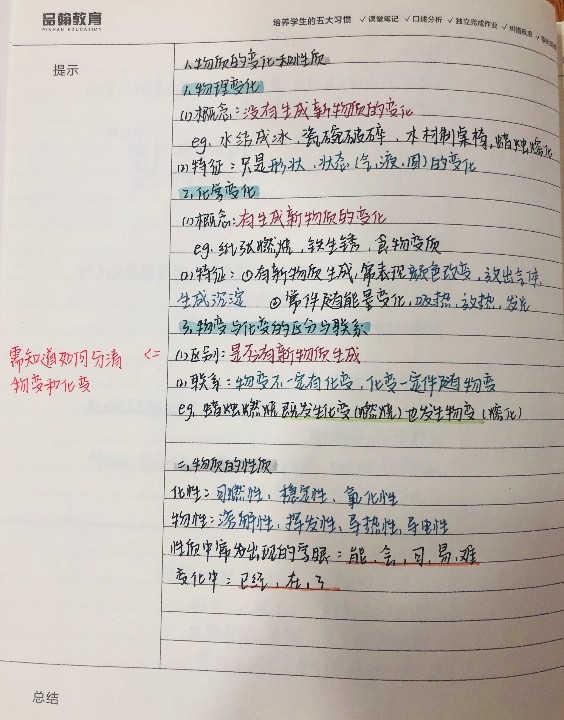 品翰教育
PINHAN EDUCATION
培养学生的五大习惯 ✓课堂笔记 ✓口述分析 ✓独立完成作业 ✓纠错
提示
一、物质的变化和性质
1、物理变化
(1)概念：没有生成新物质的变化
eg. 水结成冰，瓷碗破碎，木材制桌椅，蜡烛熔化
(2)特征：只是形状、状态(气、液、固)的变化
2、化学变化
(1)概念：有生成新物质的变化
eg. 纸张燃烧，铁生锈，食物变质
(2)特征：①有新物质生成，常表现颜色改变，放出气体，
生成沉淀 ②常伴随有能量变化，吸热，放热，发光
3、物变与化变的区分与联系
需知道如何分清 <= (1)区别：是否有新物质生成
物变和化变 (2)联系：物变不一定有化变，化变一定伴随有物变
eg. 蜡烛燃烧既发生化变(燃烧)也发生物变(熔化)
二、物质的性质
化性：可燃性、稳定性、氧化性
物性：溶解性、挥发性、导热性、导电性
性质中常发出现的字眼：能、会、可、易、难
变化中：已经，在，了
总结